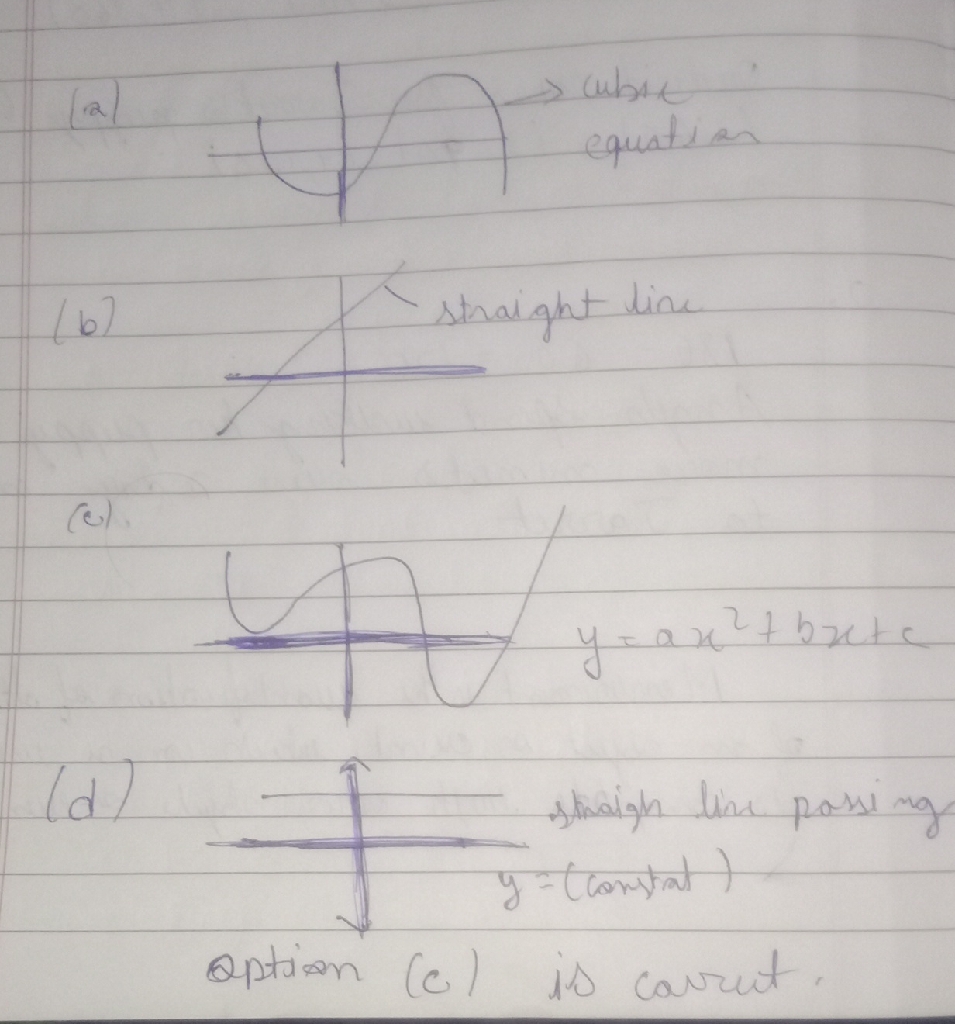 (a)
cubic
equation
(b)
straight line
(c)
y = ax² + bx + c
(d)
straigh line passing
y = (constat)
option (c) is corrut.